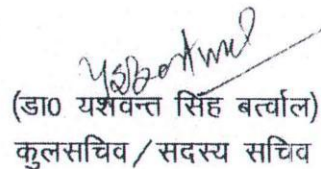 (डा0 यशवन्त सिंह बर्त्वाल)
कुलसचिव / सदस्य सचिव